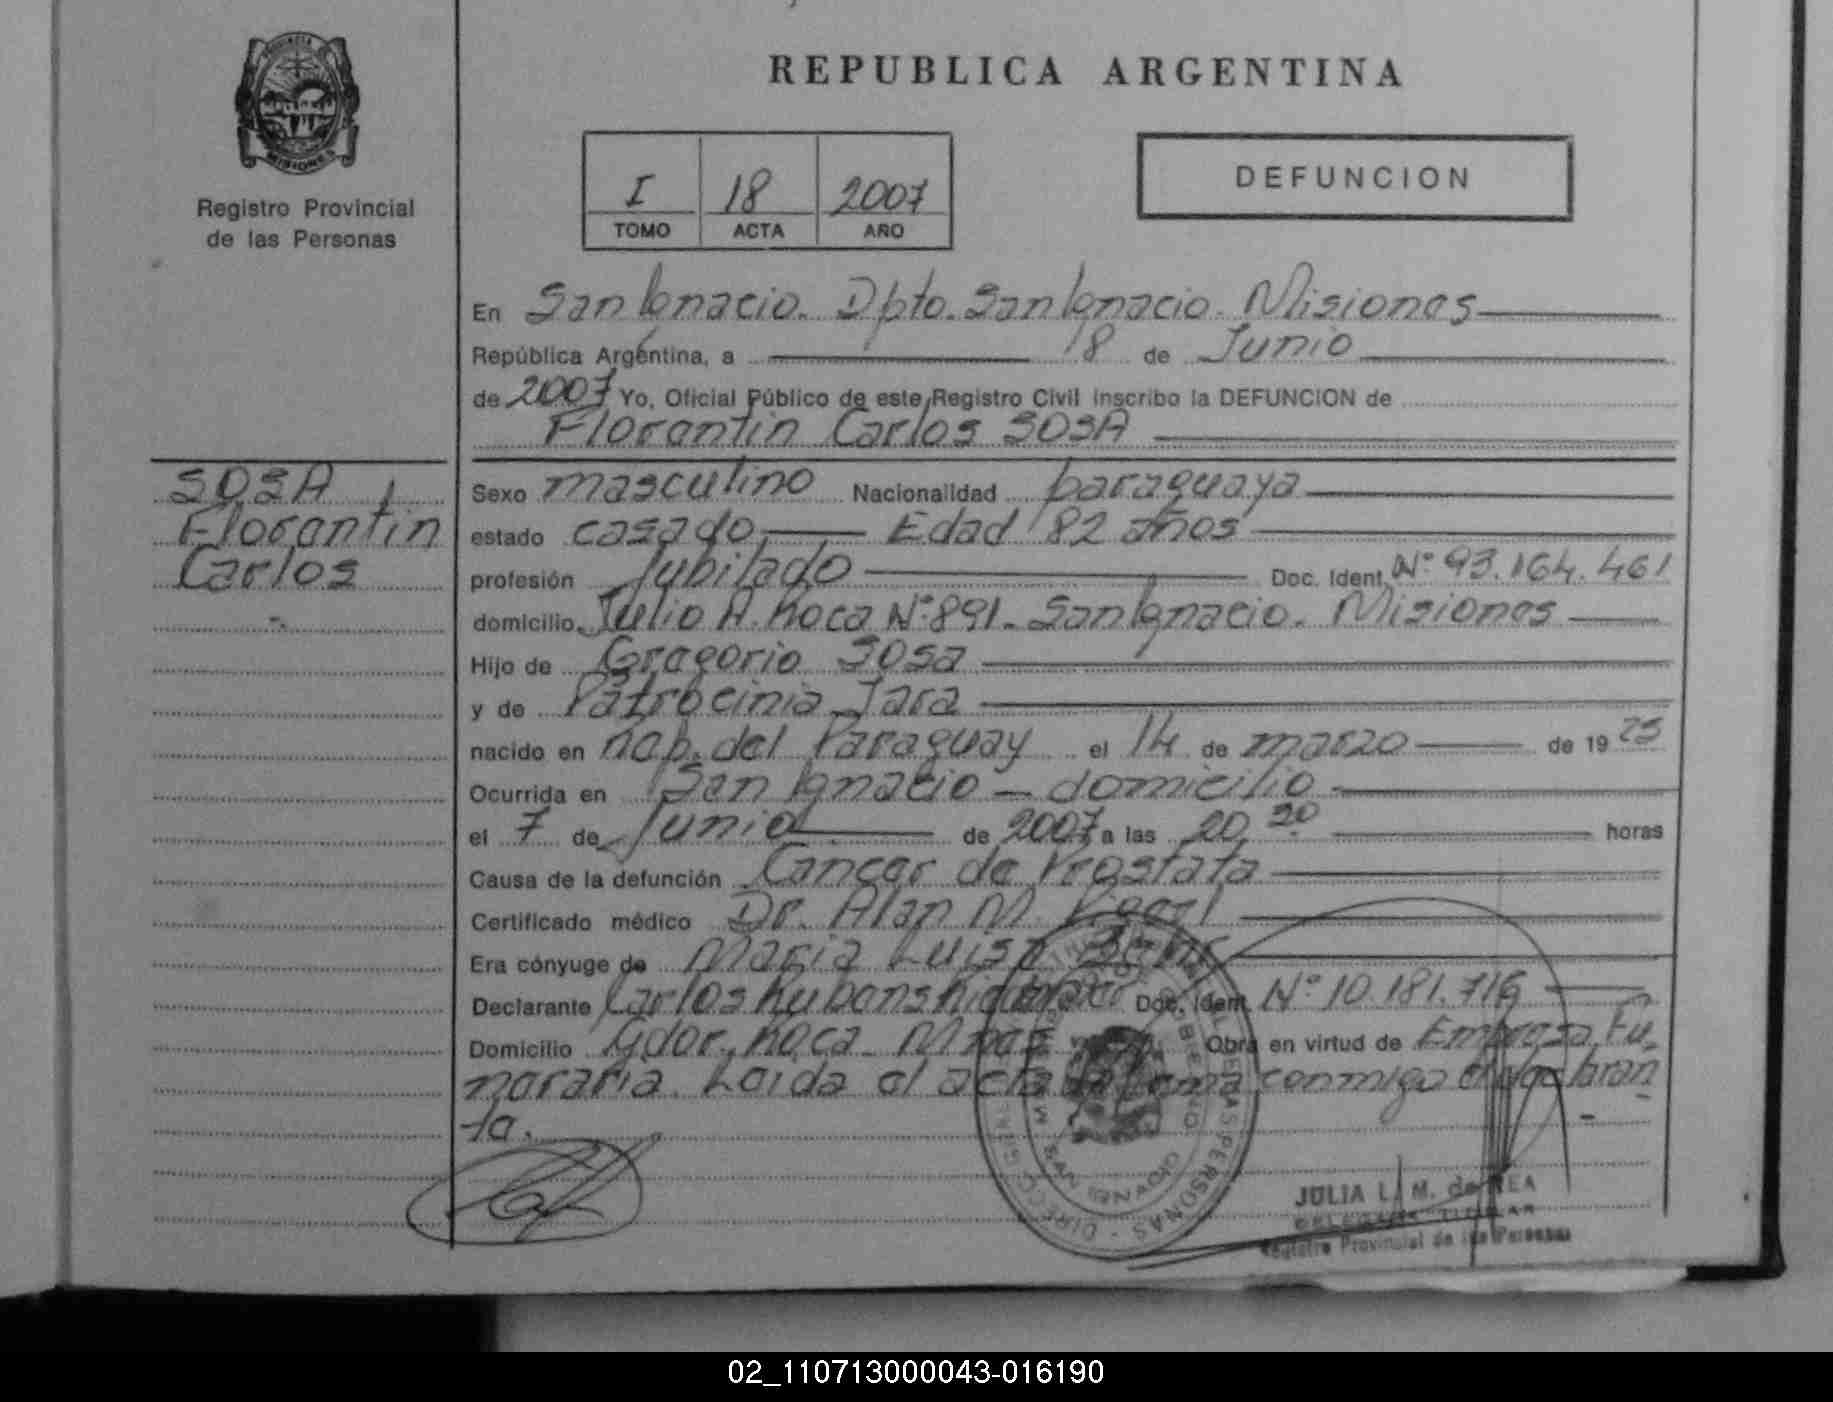 PROVINCIA DE
MISIONES
Registro Provincial
de las Personas
REPUBLICA ARGENTINA
I 18 2007
TOMO ACTA AÑO
DEFUNCION
En San Ignacio. Dpto. San Ignacio. Misiones
República Argentina, a 18 de Junio
de 2007 Yo, Oficial Público de este Registro Civil inscribo la DEFUNCION de
Florentin Carlos SOSA
SOSA
Florentin
Carlos
Sexo masculino Nacionalidad paraguaya
estado casado Edad 82 años
profesión Jubilado Doc. Ident. Nº 93.164.461
domicilio Julio A. Roca Nº 891. San Ignacio. Misiones
Hijo de Gregorio Sosa
y de Patrocinia Jara
nacido en Rep. del Paraguay el 14 de marzo de 19 25
Ocurrida en San Ignacio - domicilio
el 7 de Junio de 2007 a las 20 horas
Causa de la defunción Cancer de Prostata
Certificado médico Dr. Alan M.
Era cónyuge de Maria Luisa
Declarante Carlos Doc. Ident. Nº 10.181.716
Domicilio Gdor. Roca. Mnes Obra en virtud de Empresa Fu-
neraria. Leida el acta la firma conmigo el declaran
te.
JULIA L. M. de REA
DELEGADA TITULAR
Registro Provincial de las Personas
02_110713000043-016190